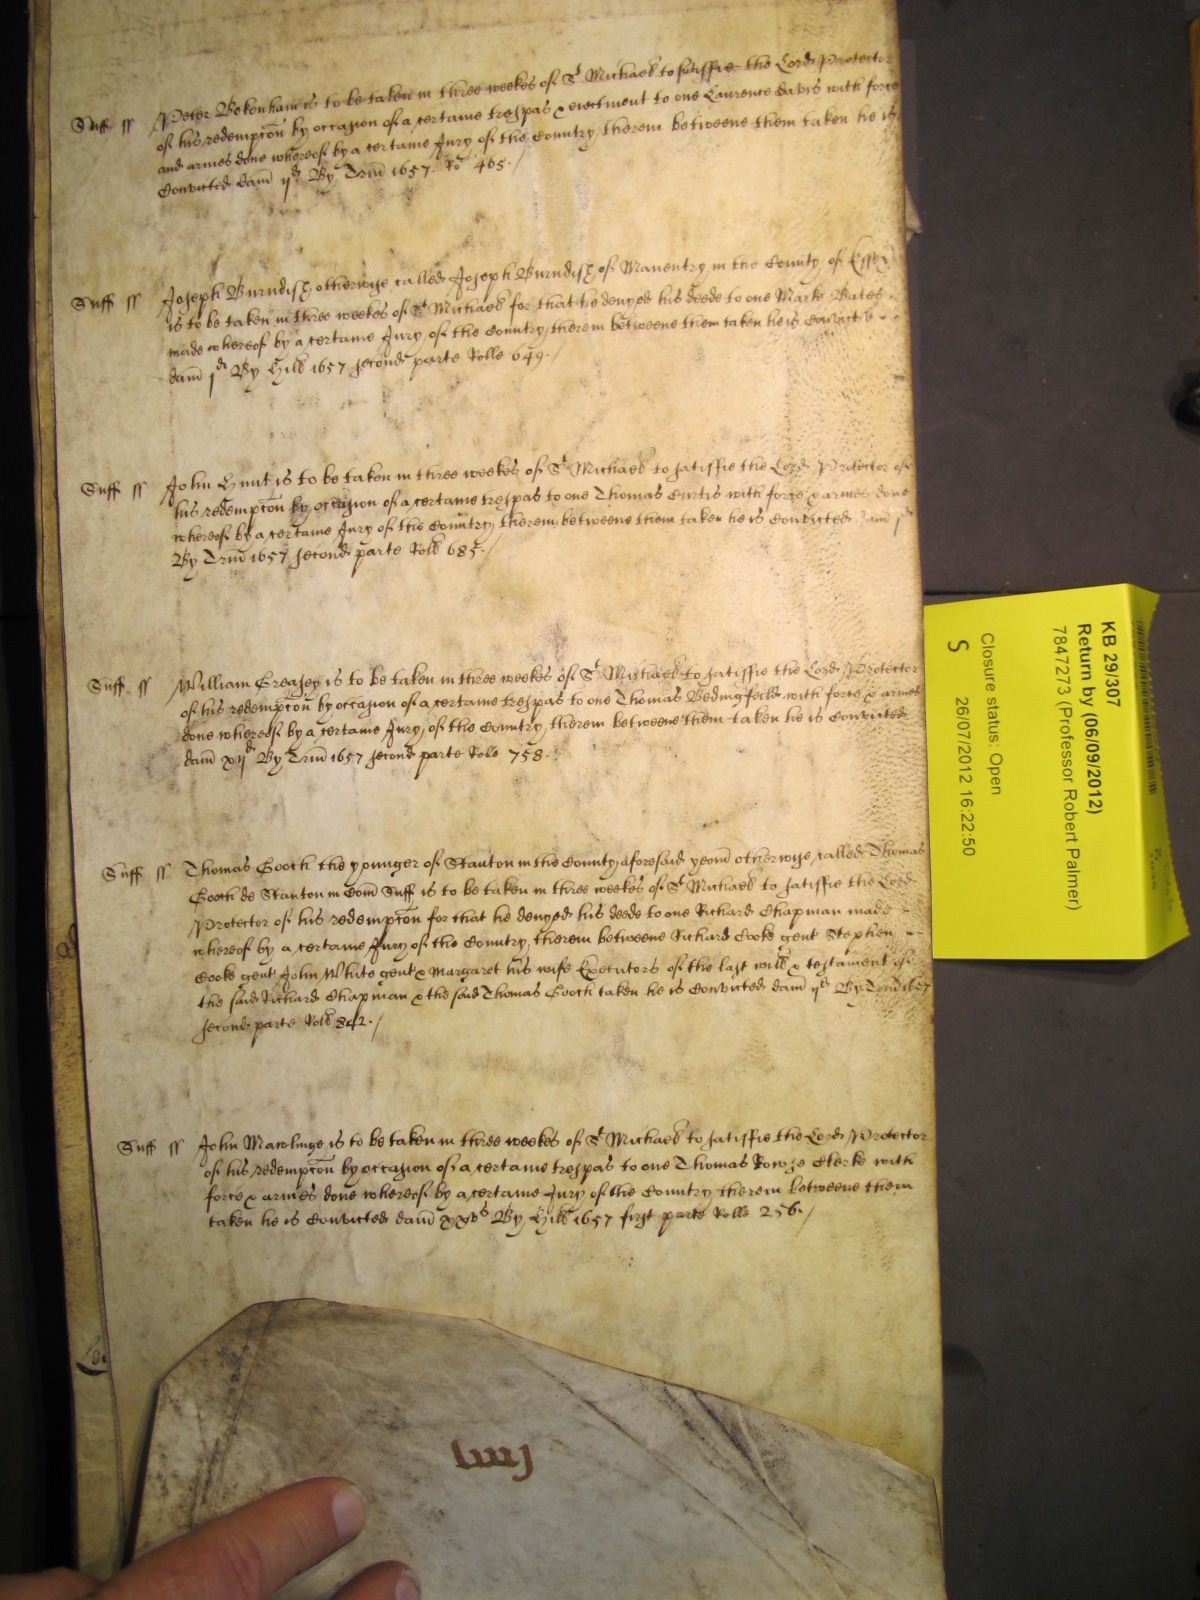 Suff ss Peter Bekenham is to be taken in three weekes of St Michaell to satisfie the Lord Protector
of his redempcōn by occasion of a certaine trespas & eiectment to one Laurence Davis with force
and armes done whereof by a certaine Jury of the Country therein betweene them taken he is
Convicted dam̄ ijd By Trin̄ 1657. Ro 465./
Suff ss Joseph Burndish otherwise called Joseph Burndish of Manentry in the County of Essex
is to be taken in three weekes of St Michaell for that he denyed his deede to one Marke Bates
made whereof by a certaine Jury of the Country therein betweene them taken he is Convicted
dam̄ jd By Hill 1657 second parte Rolle 649./
Suff ss John Hunt is to be taken in three weekes of St Michaell to satisfie the Lord Protector of
his redempcōn by occasion of a certaine trespas to one Thomas Curtis with force & armes done
whereof by a certaine Jury of the Country therein betweene them taken he is Convicted dam̄ jd
By Trin̄ 1657 second parte Roll 685./
Suff ss William Greasey is to be taken in three weekes of St Michaell to satisfie the Lord Protector
of his redempcōn by occasion of a certaine trespas to one Thomas Bedingfeild with force & armes
done whereof by a certaine Jury of the Country therein betweene them taken he is Convicted
dam̄ xijd By Trin̄ 1657 second parte Rolle 758.
Suff ss Thomas Gooch the younger of Stanton in the County aforesaid yeom̄ otherwise called Thomas
Gooch de Stanton in Com̄ Suff is to be taken in three weekes of St Michaell to satisfie the Lord
Protector of his redempcōn for that he denyed his deede to one Richard Chapman made
whereof by a certaine Jury of the Country therein betweene Richard Cooke gent Stephen
Cooke gent John White gent & Margaret his wife Executors of the last will & testament of
the said Richard Chapman & the said Thomas Gooch taken he is Convicted dam̄ ijd By Trin̄ 1657
second parte Roll 842./
Suff ss John Mawlinge is to be taken in three weekes of St Michaell to satisfie the Lord Protector
of his redempcōn by occasion of a certaine trespas to one Thomas Rowse Clerke with
force & armes done whereof by a certaine Jury of the Country therein betweene them
taken he is Convicted dam̄ xxvs By Hill 1657 first parte Rolle 256./
liiij
KB 29/307
Return by (06/09/2012)
7847273 (Professor Robert Palmer)
Closure status: Open
S 26/07/2012 16:22:50